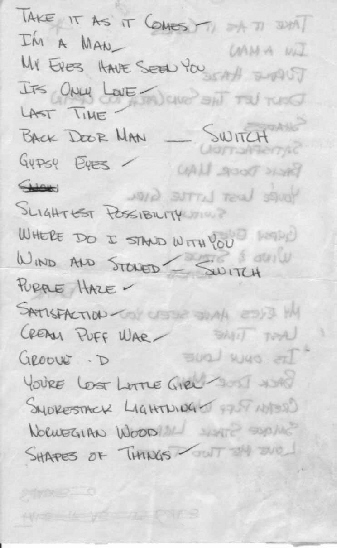 TAKE IT AS IT COMES ✓
I'M A MAN ✓
MY EYES HAVE SEEN YOU
ITS ONLY LOVE ✓
LAST TIME ✓
BACK DOOR MAN — SWITCH
GYPSY EYES ✓
SLIGHTEST POSSIBILITY
WHERE DO I STAND WITH YOU
WIND AND STONED ✓ — SWITCH
PURPLE HAZE ✓
SATISFACTION ✓
CREAM PUFF WAR ✓
GROOVE · D
YOU'RE LOST LITTLE GIRL ✓
SMOKESTACK LIGHTNING ✓
NORWEGIAN WOOD
SHAPES OF THINGS ✓